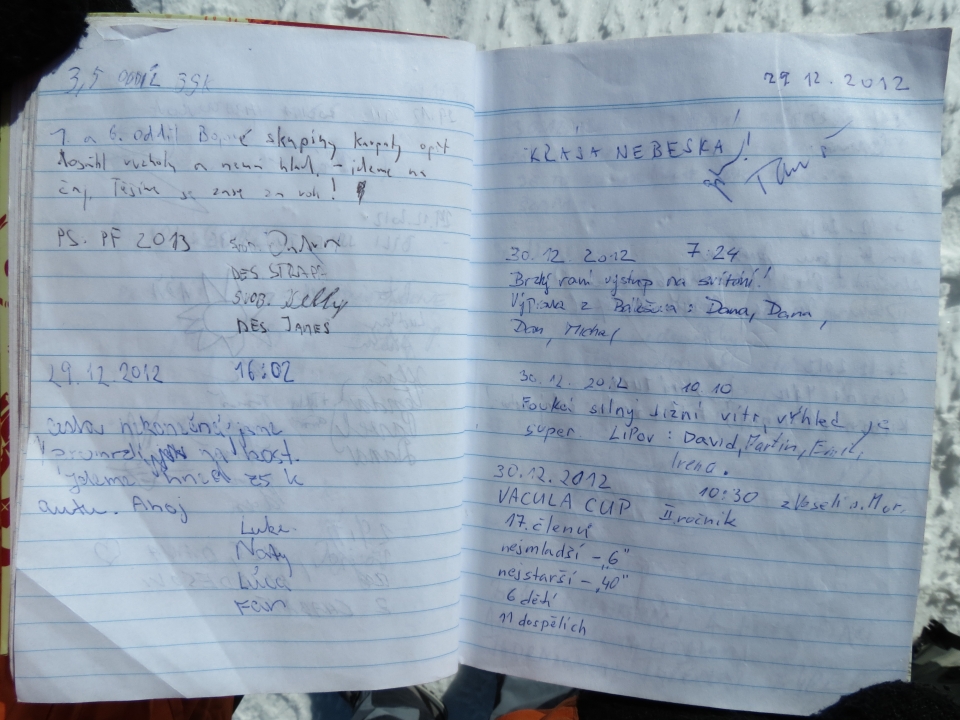 3,5
1. a 6. oddíl skupiny Karpaty opět
vrcholu a nemá hlad, – jdeme na
čaj. Těšíme se zase za rok!
PS. PF 2013
DES. STRAP
SVOB. Kelly
DES. JAMES
29.12.2012 16:02
na kost.
jdeme hned
autu. Ahoj
Luke
Naty
Lúca
29 12. 2012
KRÁSA NEBESKÁ!
30.12 2012 7:24
Brzký raní výstup na svítání!
Výprava z : Dana, Dana,
Dan, Michal,
30.12.2012 10 10
Fouká silný jižní vítr, výhled je
super LIPOV: David, Martin, Emil,
Irena.
30.12.2012
10:30 z Veselí n. Mor.
VACULA CUP II ročník
17. členů
nejmladší – „6"
nejstarší – „40"
6 dětí
11 dospělích